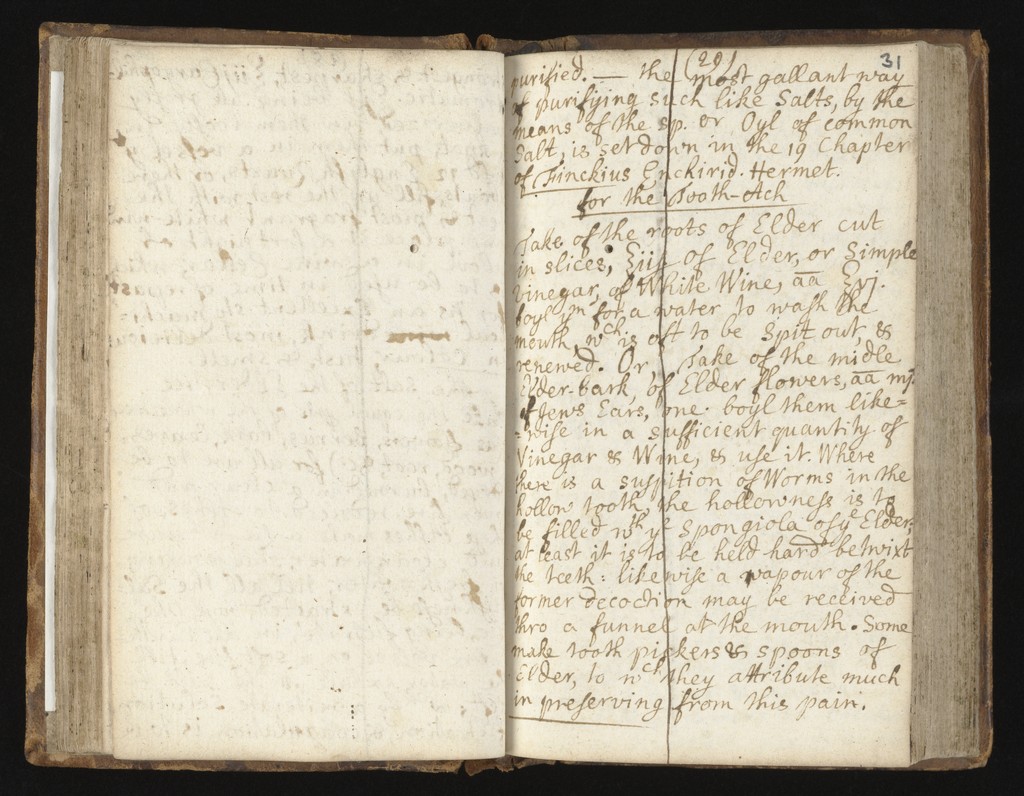 (29)
31
purified. — the most gallant way
of purifying such like Salts, by the
means of the sp. or Oyl of common
Salt, is set down in the 19 Chapter
of Finckius Enchirid. Hermet.
for the Tooth-Ach
Take of the roots of Elder cut
in slices, ℥iij of Elder, or Simple
vinegar, of White Wine, āā ℥vj.
boyl ym for a water to wash the
mouth, wch is oft to be Spit out, &
renewed. Or, Take of the midle
Elder-bark, of Elder flowers, āā mj.
of Jews Ears, one. boyl them like=
=wise in a sufficient quantity of
Vinegar & Wine, & use it. Where
there is a suspition of Worms in the
hollow tooth, the hollowness is to
be filled wth ye Spongiola of ye Elder,
at least it is to be held hard betwixt
the teeth: likewise a vapour of the
former decoction may be received
thro a funnel at the mouth. Some
make tooth pickers & spoons of
Elder, to wch they attribute much
in preserving from this pain.